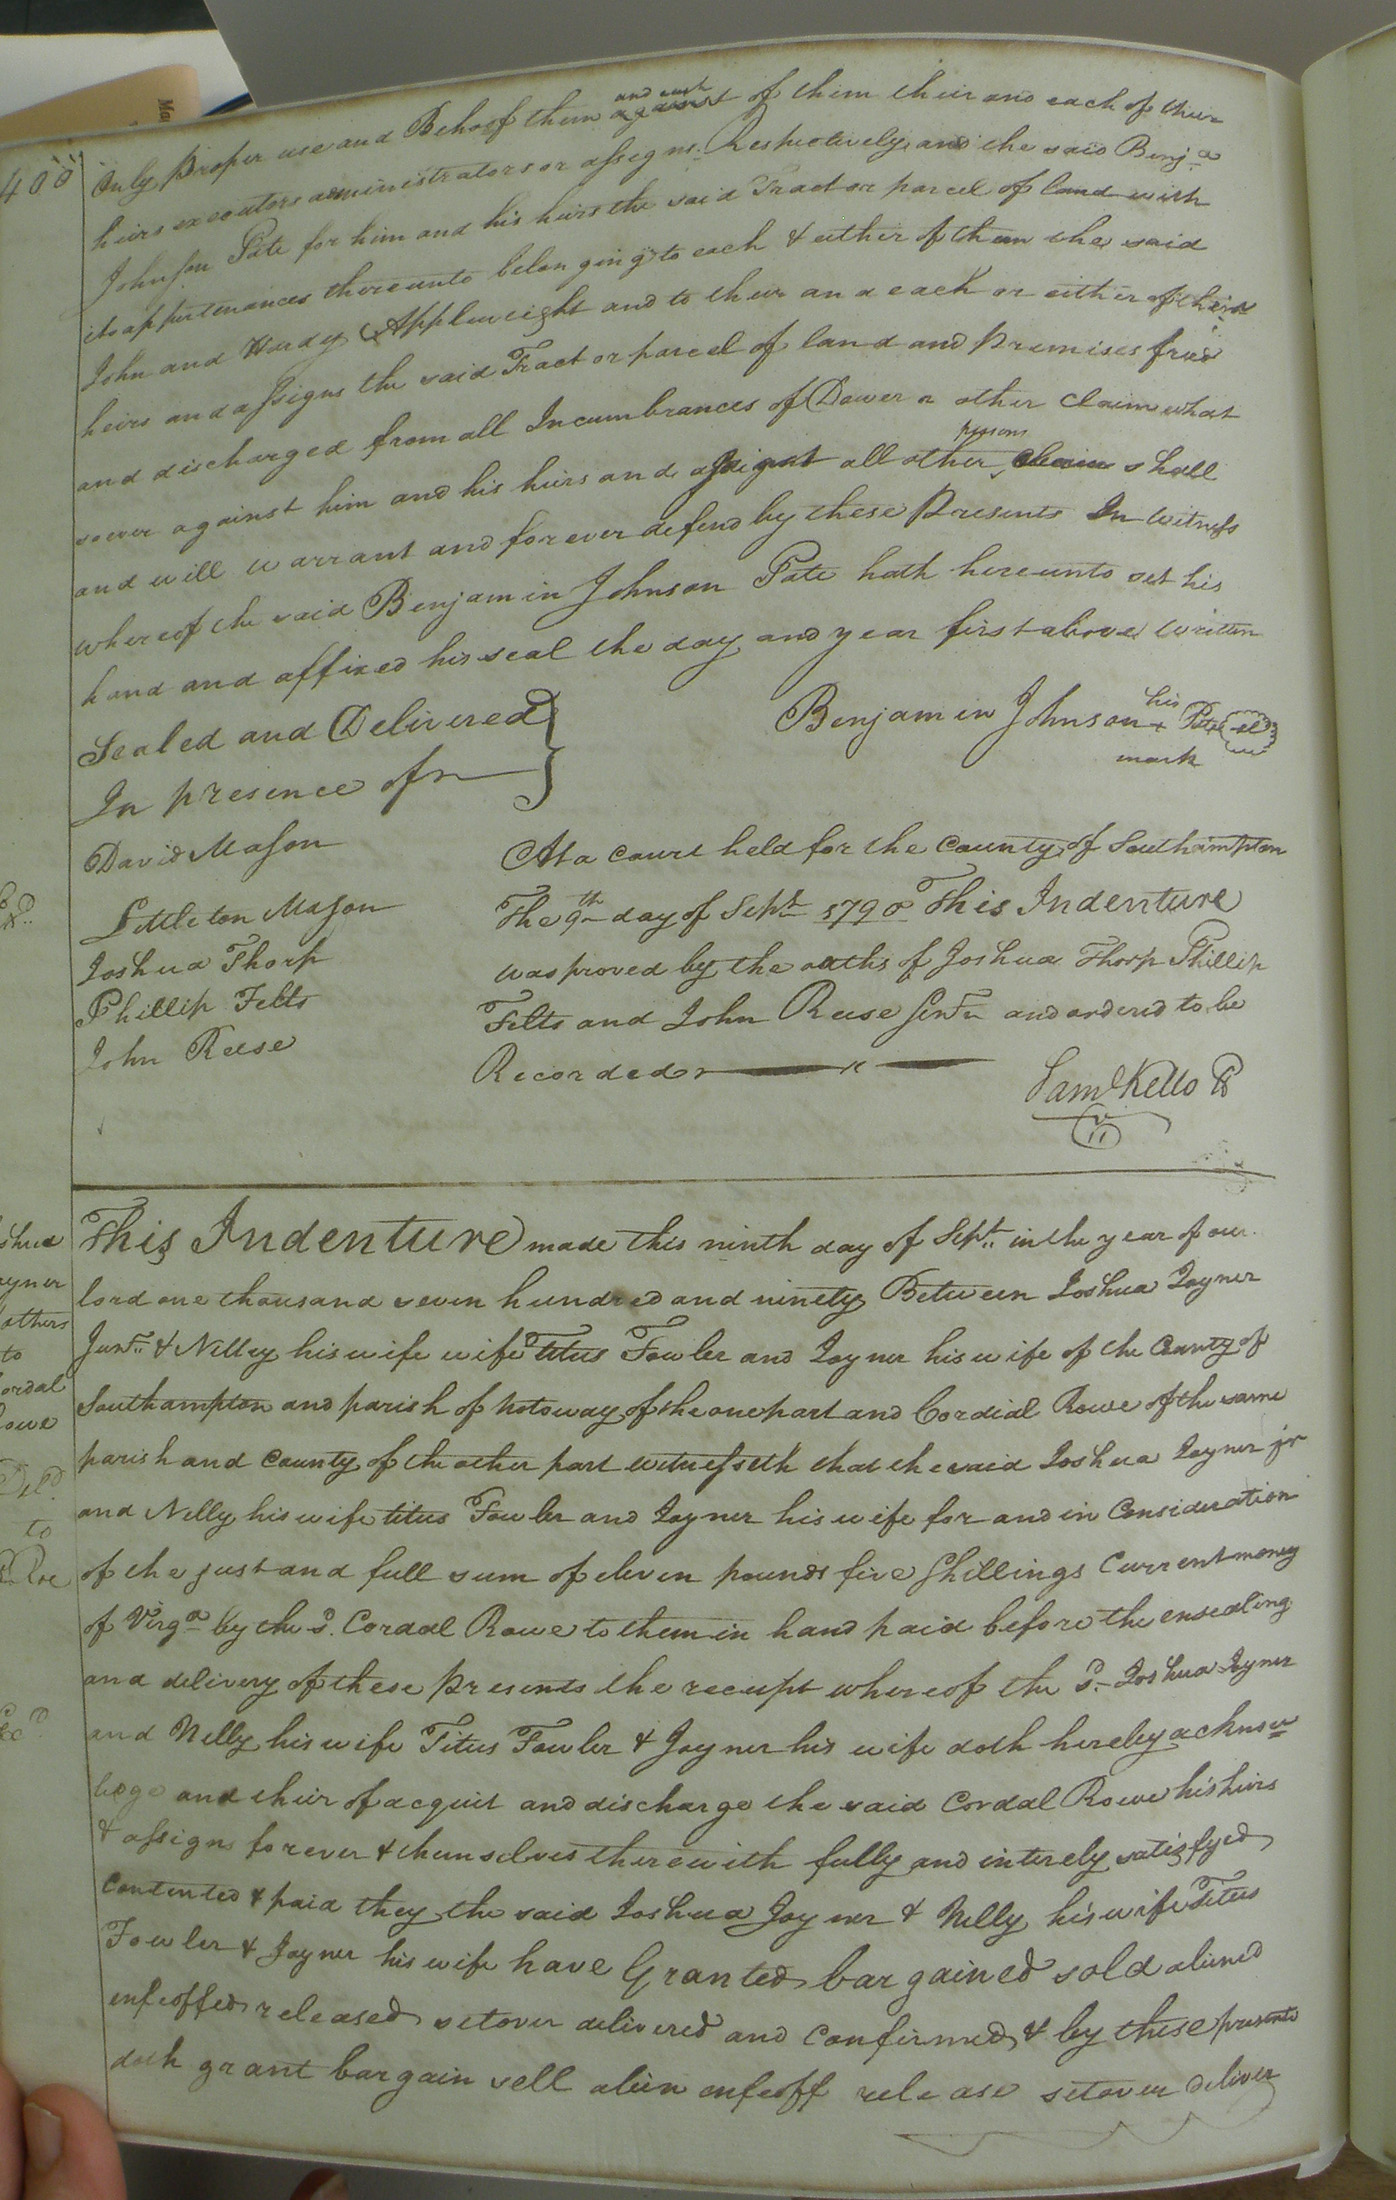 400
only proper use and Behoof them and each of them their and each of their
heirs executors administrators or assigns Respectively and the said Benja
Johnson Pate for him and his heirs the said Tract or parcel of land with
its appurtenances thereunto belonging to each & either of them the said
John and Hardy Applewight and to their and each or either of their
heirs and assigns the said Tract or parcel of land and premises free
and discharged from all Incumbrances of Dower or other claim what
soever against him and his heirs and against all other persons shall
and will warrant and forever defend by these Presents In witness
whereof the said Benjamin Johnson Pate hath hereunto set his
hand and affixed his seal the day and year first above written
Sealed and Delivered
In presence of
Benjamin Johnson his x mark Pate
David Mason
Littleton Mason
Joshua Thorp
Phillip Felts
John Reese
At a court held for the County of Southampton
The 9th day of Sept 1790 This Indenture
was proved by the oaths of Joshua Thorp Phillip
Felts and John Reese and ordered to be
Recorded
Saml Kello
This Indenture made this ninth day of Sept. in the year of our
lord one thousand seven hundred and ninety Between Joshua Joyner
Junr. & Nelley his wife wife Titus Fowler and Joyner his wife of the County of
Southampton and parish of Notoway of the one part and Cordial Rowe of the same
parish and County of the other part witnesseth that the said Joshua Joyner jr
and Nelly his wife titus Fowler and Joyner his wife for and in Consideration
of the just and full sum of eleven pounds five Shillings Current money
of Virga by the sd. Cordal Rowe to them in hand paid before the ensealing
and delivery of these presents the receipt whereof the sd. Joshua Joyner
and Nelly his wife Titus Fowler & Joyner his wife doth hereby acknow
lege and their of acquit and discharge the said Cordal Rowe his heirs
& assigns forever & themselves therewith fully and intirely satisfyed
Contented & paid they the said Joshua Joyner & Nelly his wife Titus
Fowler & Joyner his wife have Granted bargained sold aliened
enfeoffed released setover delivered and Confirmed & by these presents
doth grant bargain sell alien enfeoff release setover deliver
to
ordal
owe
to